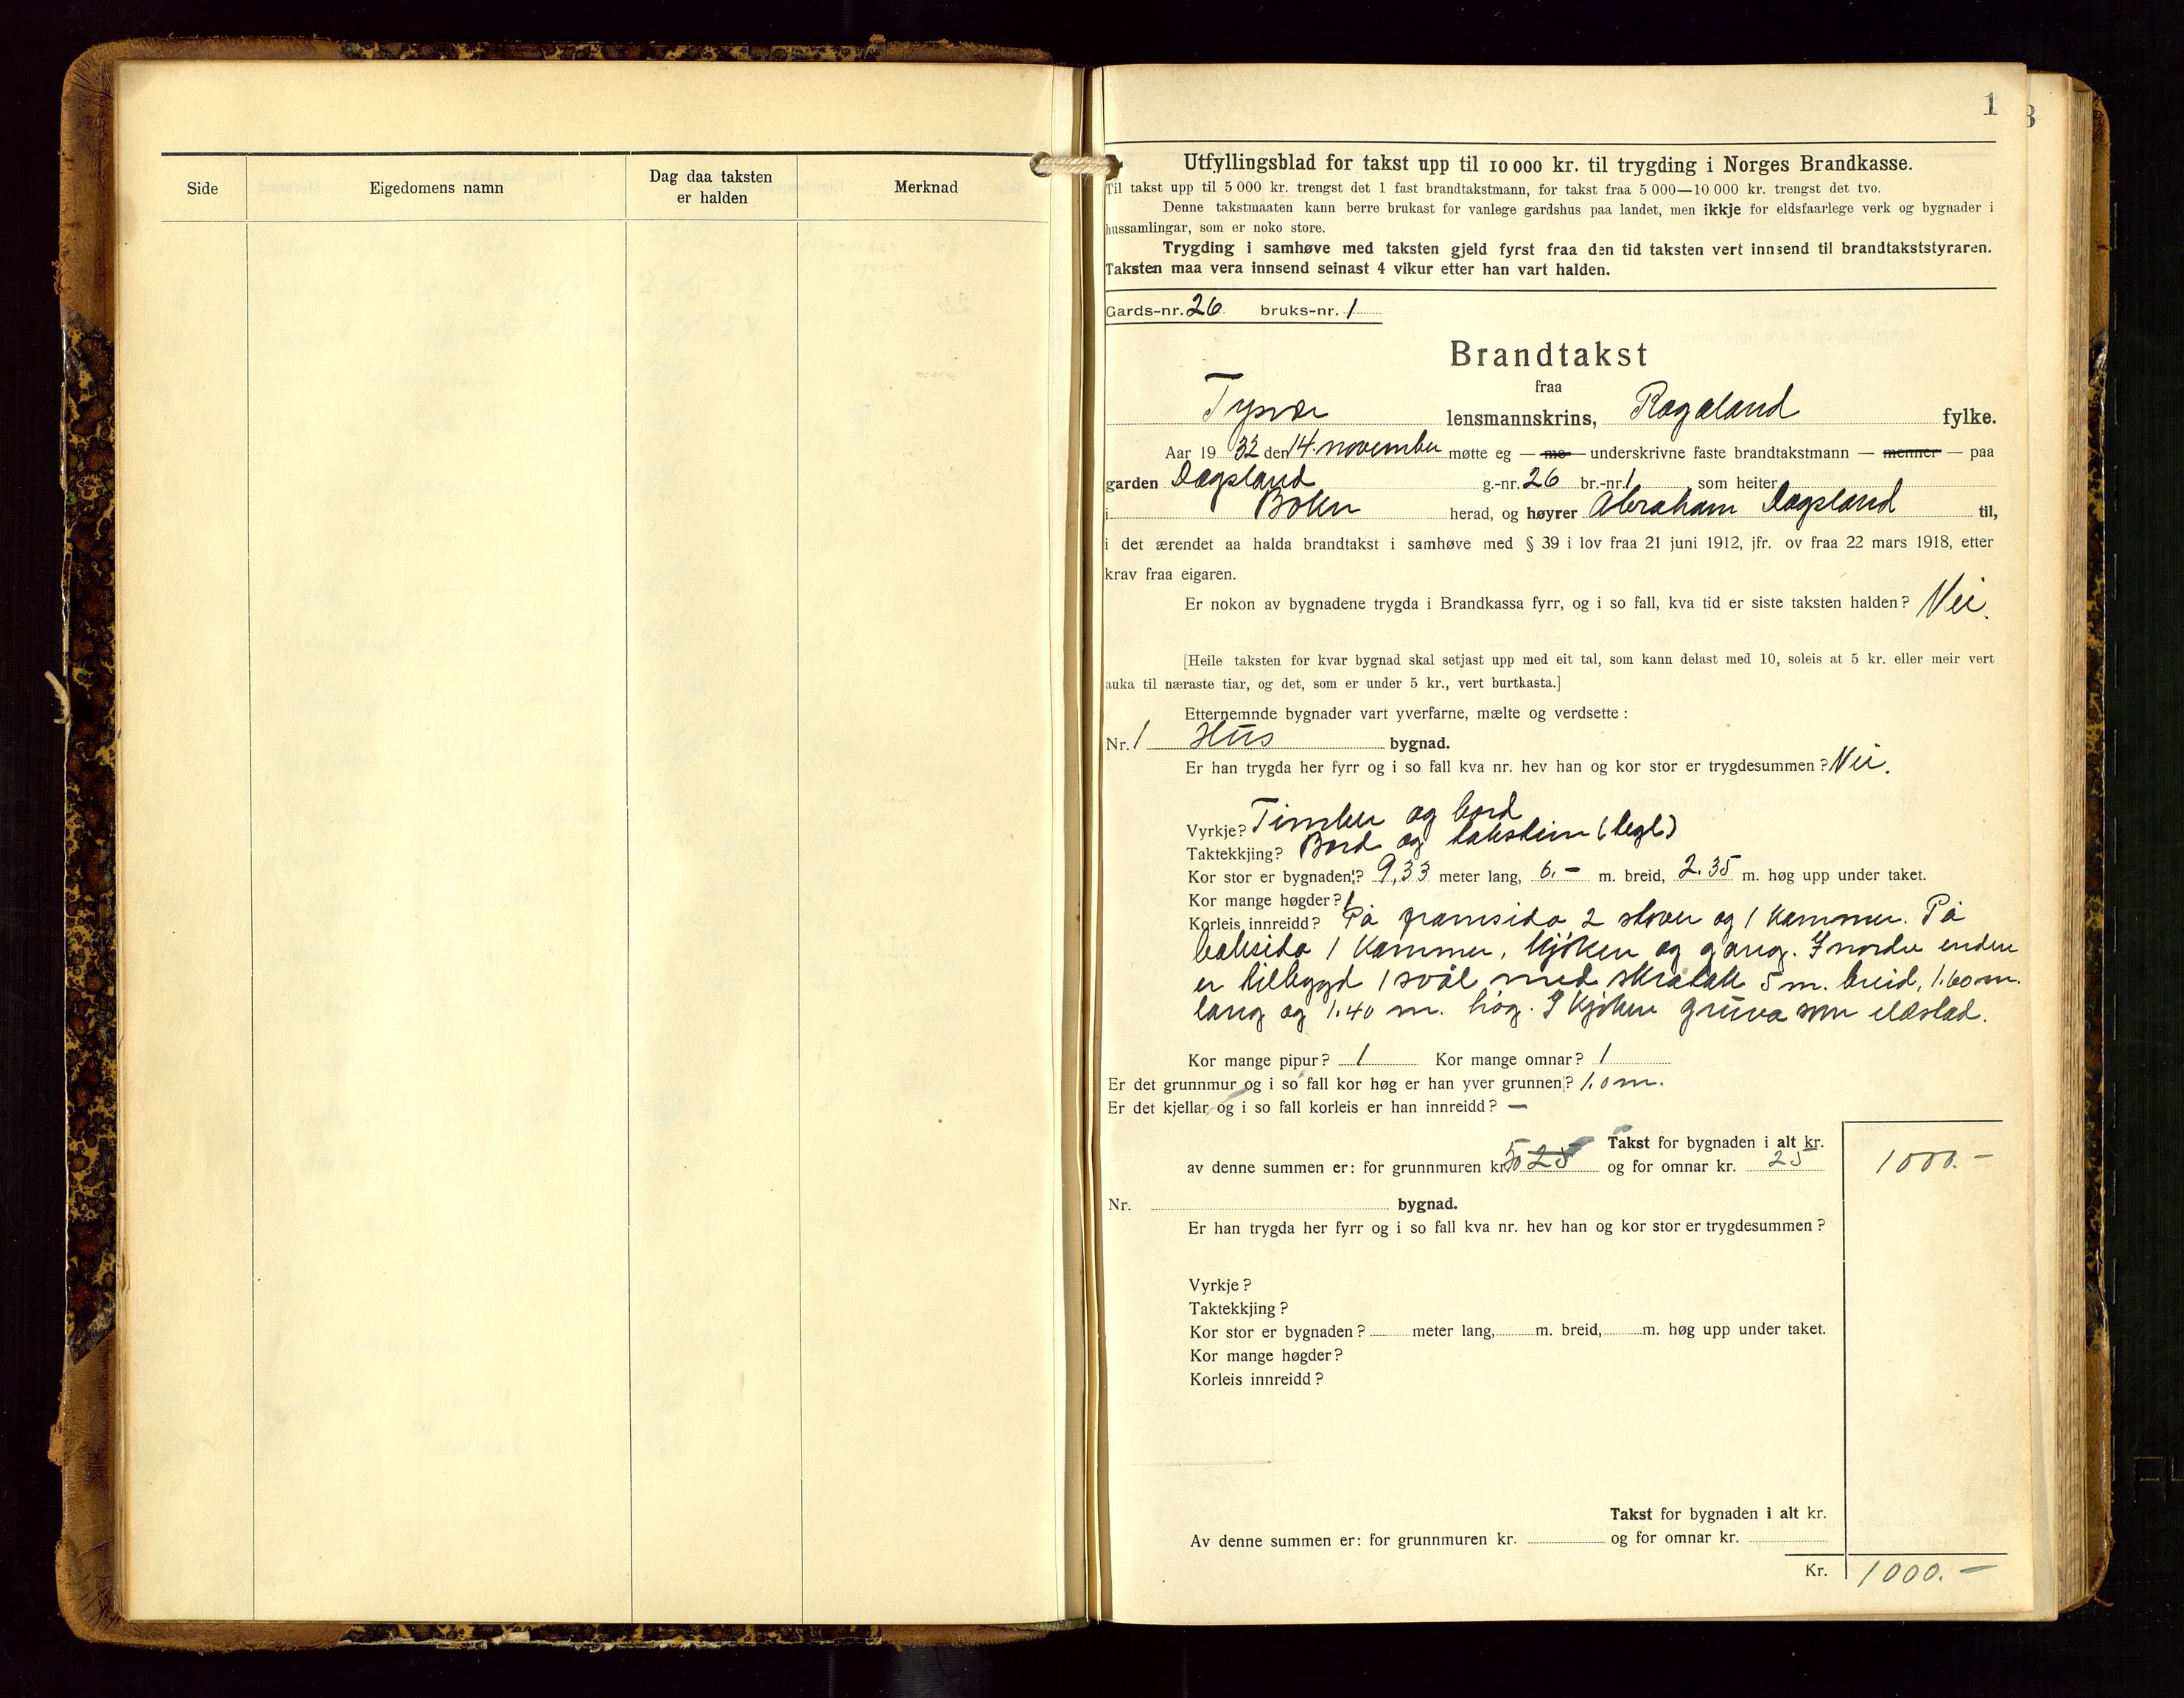 Side
Eigedomens namn
Dag daa taksten
er halden
Merknad
1
3
Utfyllingsblad for takst upp til 10 000 kr. til trygding i Norges Brandkasse.
Til takst upp til 5 000 kr. trengst det 1 fast brandtakstmann, for takst fraa 5 000—10 000 kr. trengst det tvo.
Denne takstmaaten kann berre brukast for vanlege gardshus paa landet, men ikkje for eldsfaarlege verk og bygnader i
hussamlingar, som er noko store.
Trygding i samhøve med taksten gjeld fyrst fraa den tid taksten vert innsend til brandtakststyraren.
Taksten maa vera innsend seinast 4 vikur etter han vart halden.
Gards-nr. 26 bruks-nr. 1
Brandtakst
fraa
Tysvær lensmannskrins, Rogaland fylke.
Aar 19 32 den 14. november møtte eg — me — underskrivne faste brandtakstmann — menner — paa
garden Dagsland g.-nr. 26 br.-nr. 1 som heiter
i Bokn herad, og høyrer Abraham Dagsland til,
i det ærendet aa halda brandtakst i samhøve med § 39 i lov fraa 21 juni 1912, jfr. ov fraa 22 mars 1918, etter
krav fraa eigaren.
Er nokon av bygnadene trygda i Brandkassa fyrr, og i so fall, kva tid er siste taksten halden? Nei.
[Heile taksten for kvar bygnad skal setjast upp med eit tal, som kann delast med 10, soleis at 5 kr. eller meir vert
auka til næraste tiar, og det, som er under 5 kr., vert burtkasta.]
Etternemnde bygnader vart yverfarne, mælte og verdsette:
Nr. 1 Hus bygnad.
Er han trygda her fyrr og i so fall kva nr. hev han og kor stor er trygdesummen? Nei.
Vyrkje? Timber og bord
Taktekkjing? Bord og takstein (tegl)
Kor stor er bygnaden? 9,33 meter lang, 6.- m. breid, 2.35 m. høg upp under taket.
Kor mange høgder? 1
Korleis innreidd? På framsida 2 stover og 1 kammer. På
baksida 1 kammer, kjøken og gang. I nordre enden
er tilbygd 1 svål med skråtak 5 m. breid, 1.60 m.
lang og 1.40 m. høg. I kjøken gruva som eldstad.
Kor mange pipur? 1 Kor mange omnar? 1
Er det grunnmur og i so fall kor høg er han yver grunnen? 1.0 m.
Er det kjellar og i so fall korleis er han innreidd? —
Takst for bygnaden i alt kr.
av denne summen er: for grunnmuren kr. 50 25 og for omnar kr. 25 1000.-
Nr. bygnad.
Er han trygda her fyrr og i so fall kva nr. hev han og kor stor er trygdesummen?
Vyrkje?
Taktekkjing?
Kor stor er bygnaden? meter lang, m. breid, m. høg upp under taket.
Kor mange høgder?
Korleis innreidd?
Takst for bygnaden i alt kr.
Av denne summen er: for grunnmuren kr. og for omnar kr.
Kr. 1000.-